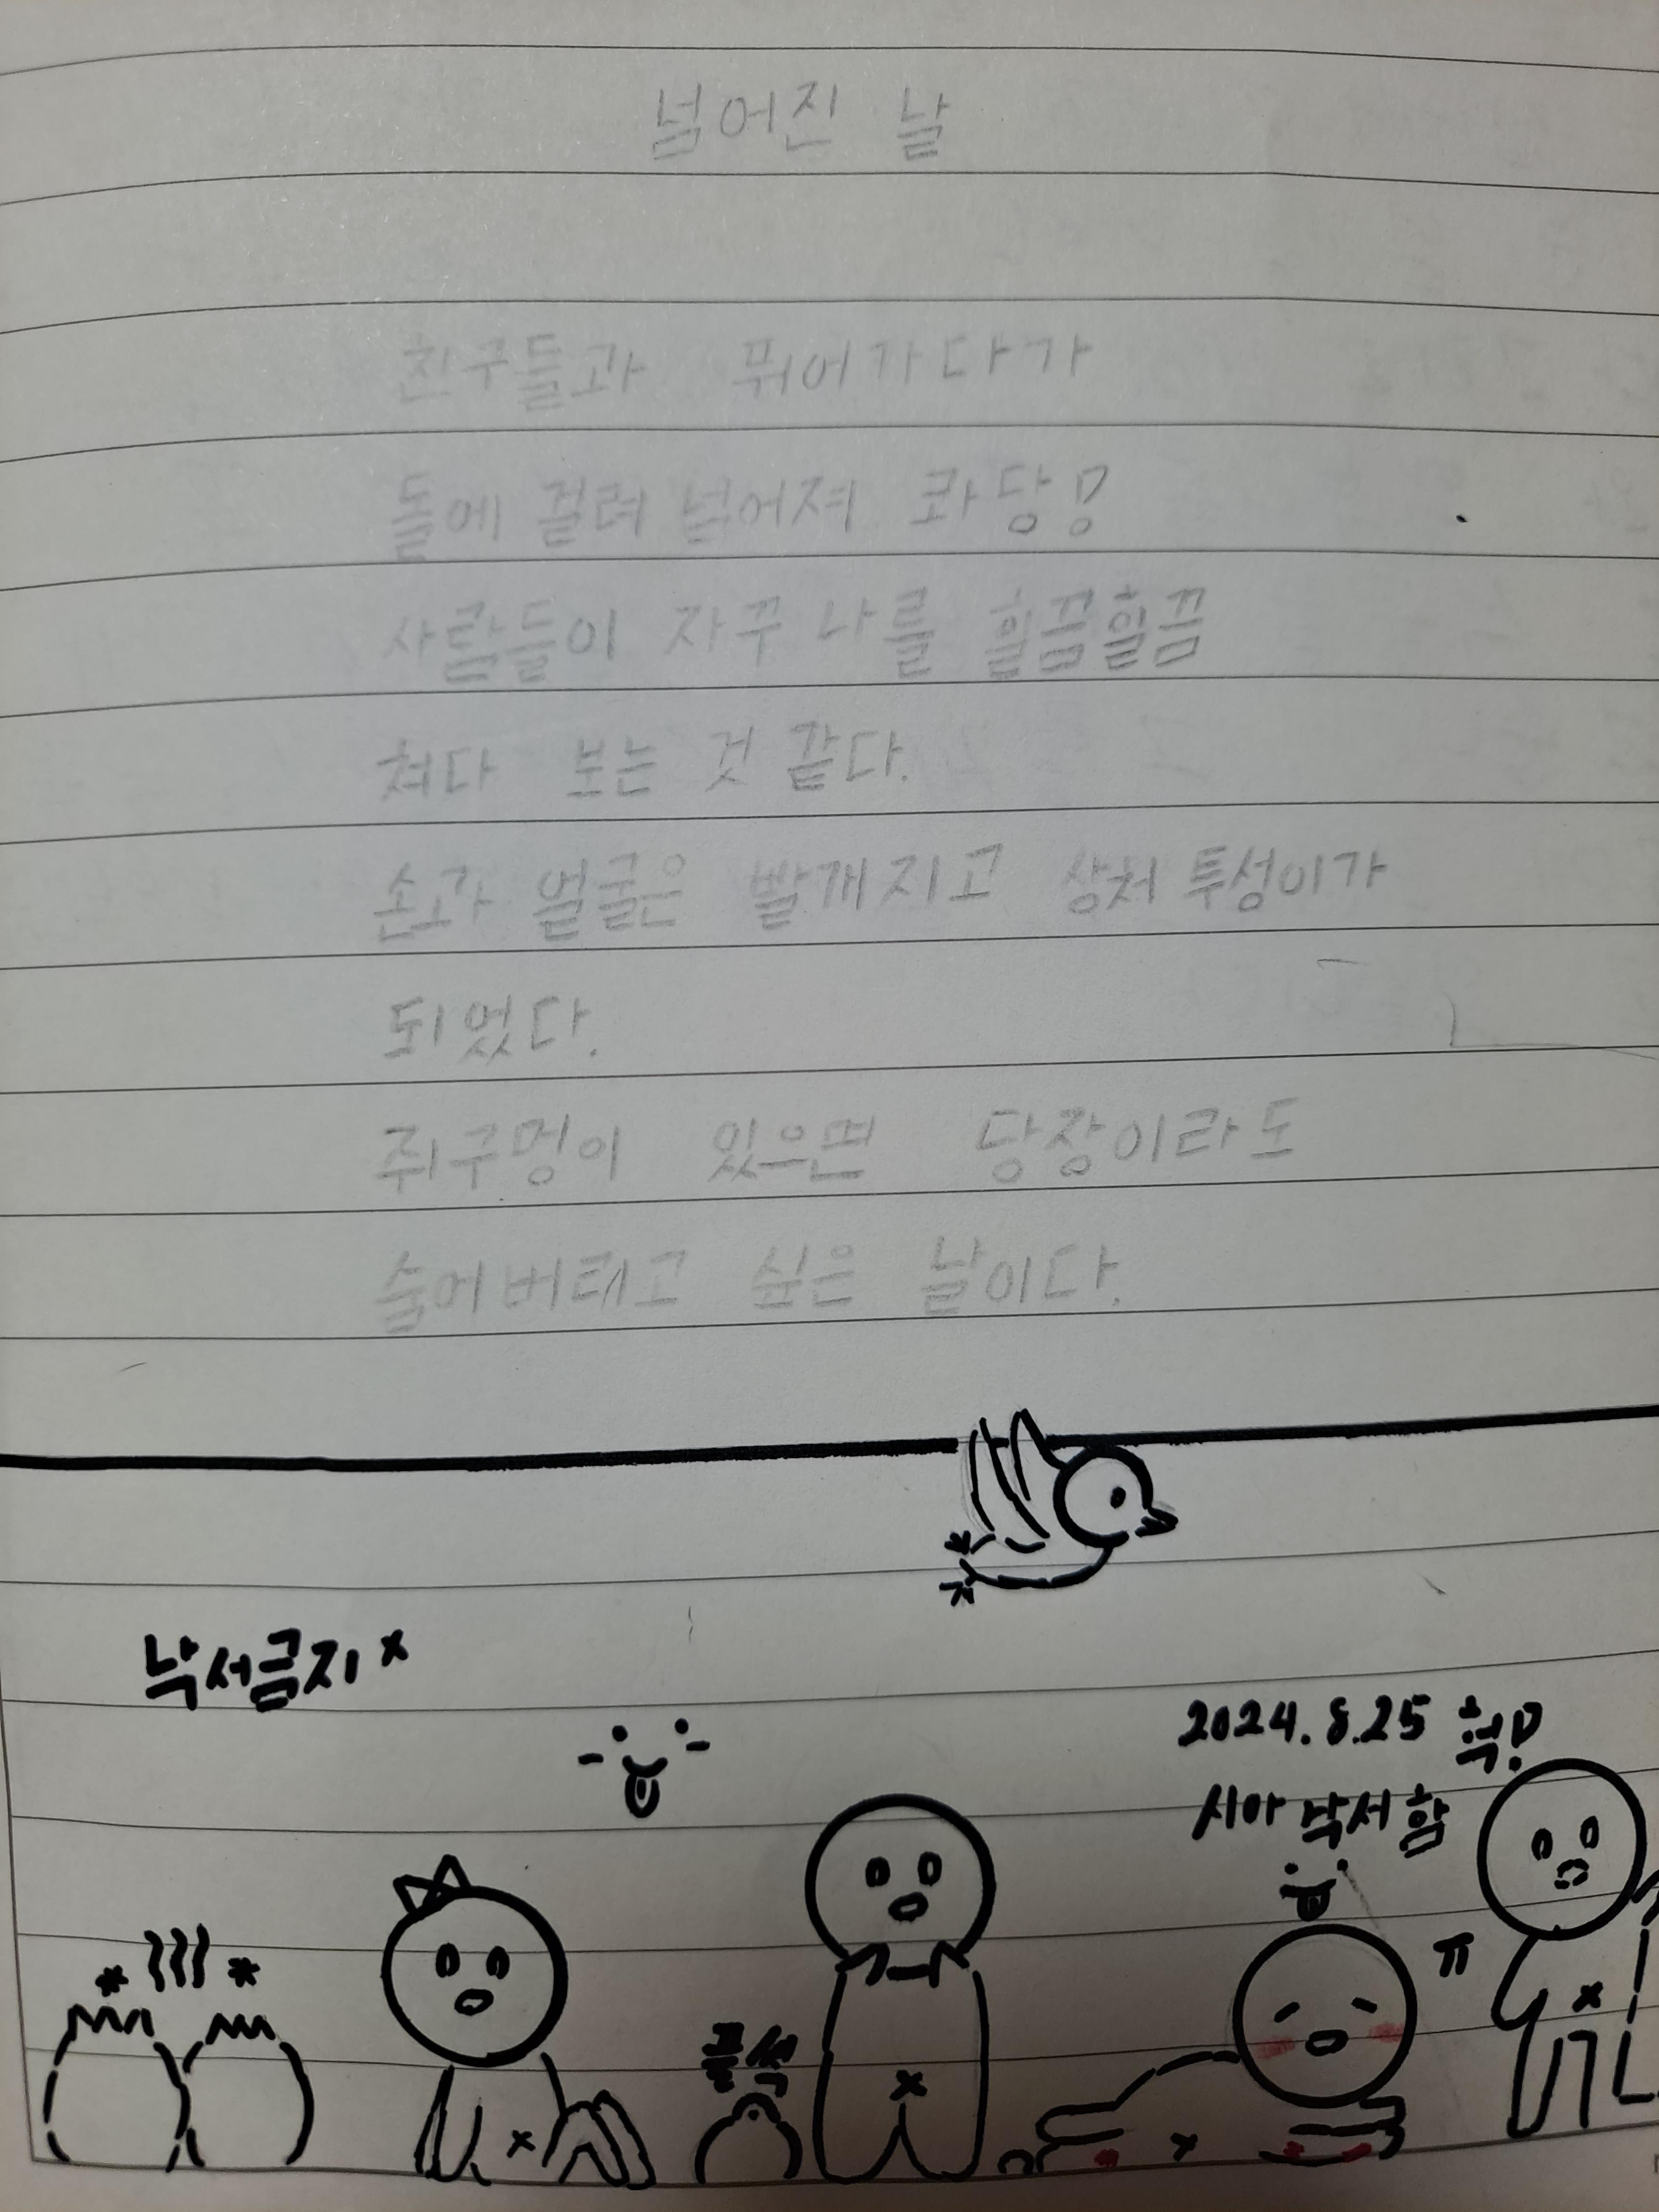 넘어진 날
친구들과 뛰어가다가
돌에 걸려 넘어져 콰당!
사람들이 자꾸 나를 힐끔힐끔
쳐다 보는 것 같다.
손과 얼굴은 빨개지고 상처 투성이가
되었다.
쥐구멍이 있으면 당장이라도
숨어버리고 싶은 날이다.
낙서금지 x
2024.8.25 헉!
시아 낙서함
ㅠ
풀썩